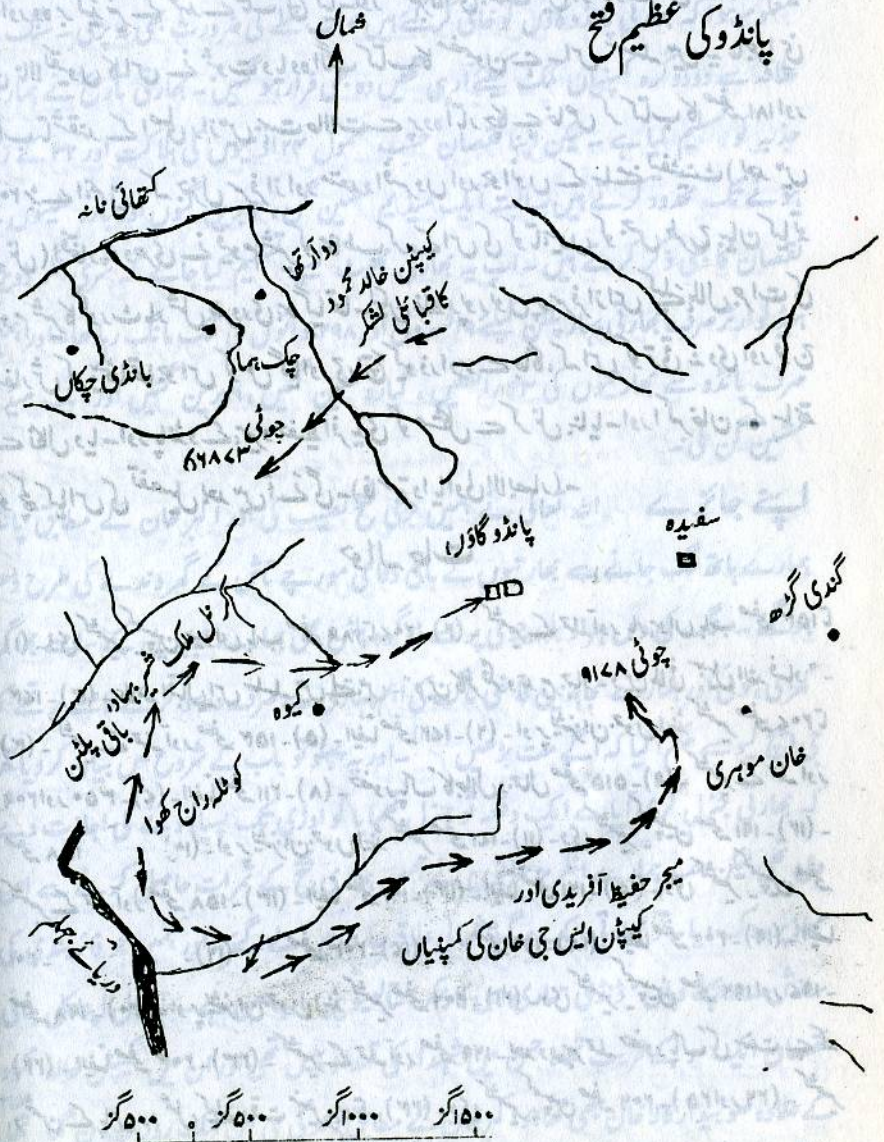 پانڈو کی عظیم فتح
شمال
کتھائی نالہ
دوآرتھا
کیپٹن خالد محمود
کا قبائلی لشکر
بانڈی چکاں
چک ہما
چوٹی
۶۶۸۷۳
پانڈو گاؤں
سفیدہ
گندی گڑھ
کرنل ملک شیر بہادر
باقی پلٹن
کیوہ
چوٹی ۹۱۷۸
خان موہری
کوٹلہ راج کھوا
میجر حفیظ آفریدی اور
کیپٹن ایس جی خان کی کمپنیاں
دریائے جہلم
۵۰۰ گز ۰ ۵۰۰ گز ۱۰۰۰ گز ۱۵۰۰ گز